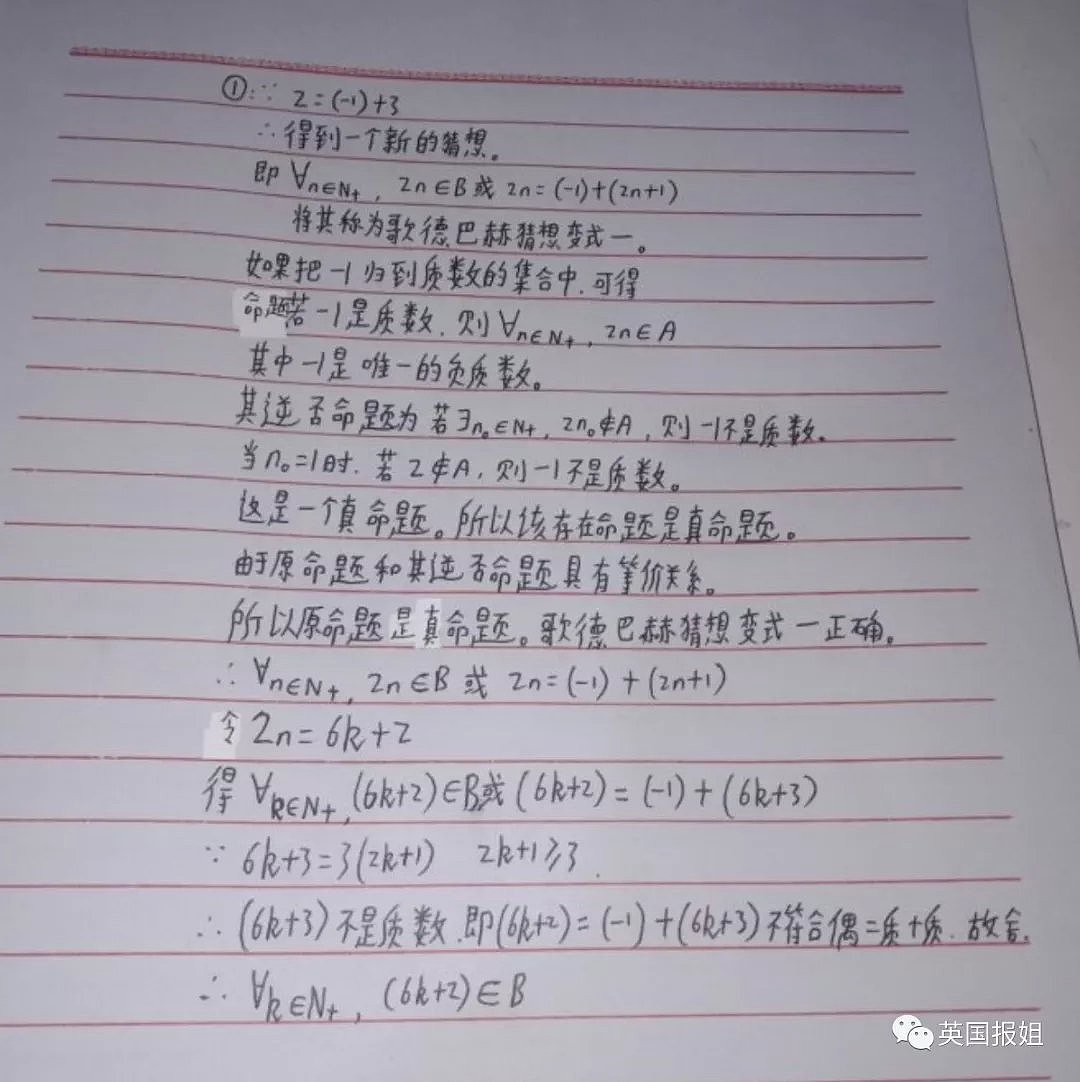 ①:∵ 2=(-1)+3
∴得到一个新的猜想。
即 ∀n∈N+, 2n∈B或 2n=(-1)+(2n+1)
将其称为歌德巴赫猜想变式一。
如果把-1归到质数的集合中,可得
命题若-1是质数,则∀n∈N+, 2n∈A
其中-1是唯一的负质数。
其逆否命题为 若∃n₀∈N+, 2n₀∉A,则-1不是质数。
当n₀=1时,若2∉A,则-1不是质数。
这是一个真命题。所以该存在命题是真命题。
由于原命题和其逆否命题具有等价关系。
所以原命题是真命题。歌德巴赫猜想变式一正确。
∴ ∀n∈N+, 2n∈B 或 2n=(-1)+(2n+1)
令 2n=6k+2
得 ∀k∈N+, (6k+2)∈B或(6k+2)=(-1)+(6k+3)
∵ 6k+3=3(2k+1) 2k+1≥3.
∴ (6k+3)不是质数.即(6k+2)=(-1)+(6k+3)不符合偶=质+质.故舍.
∴ ∀k∈N+, (6k+2)∈B
英国报姐